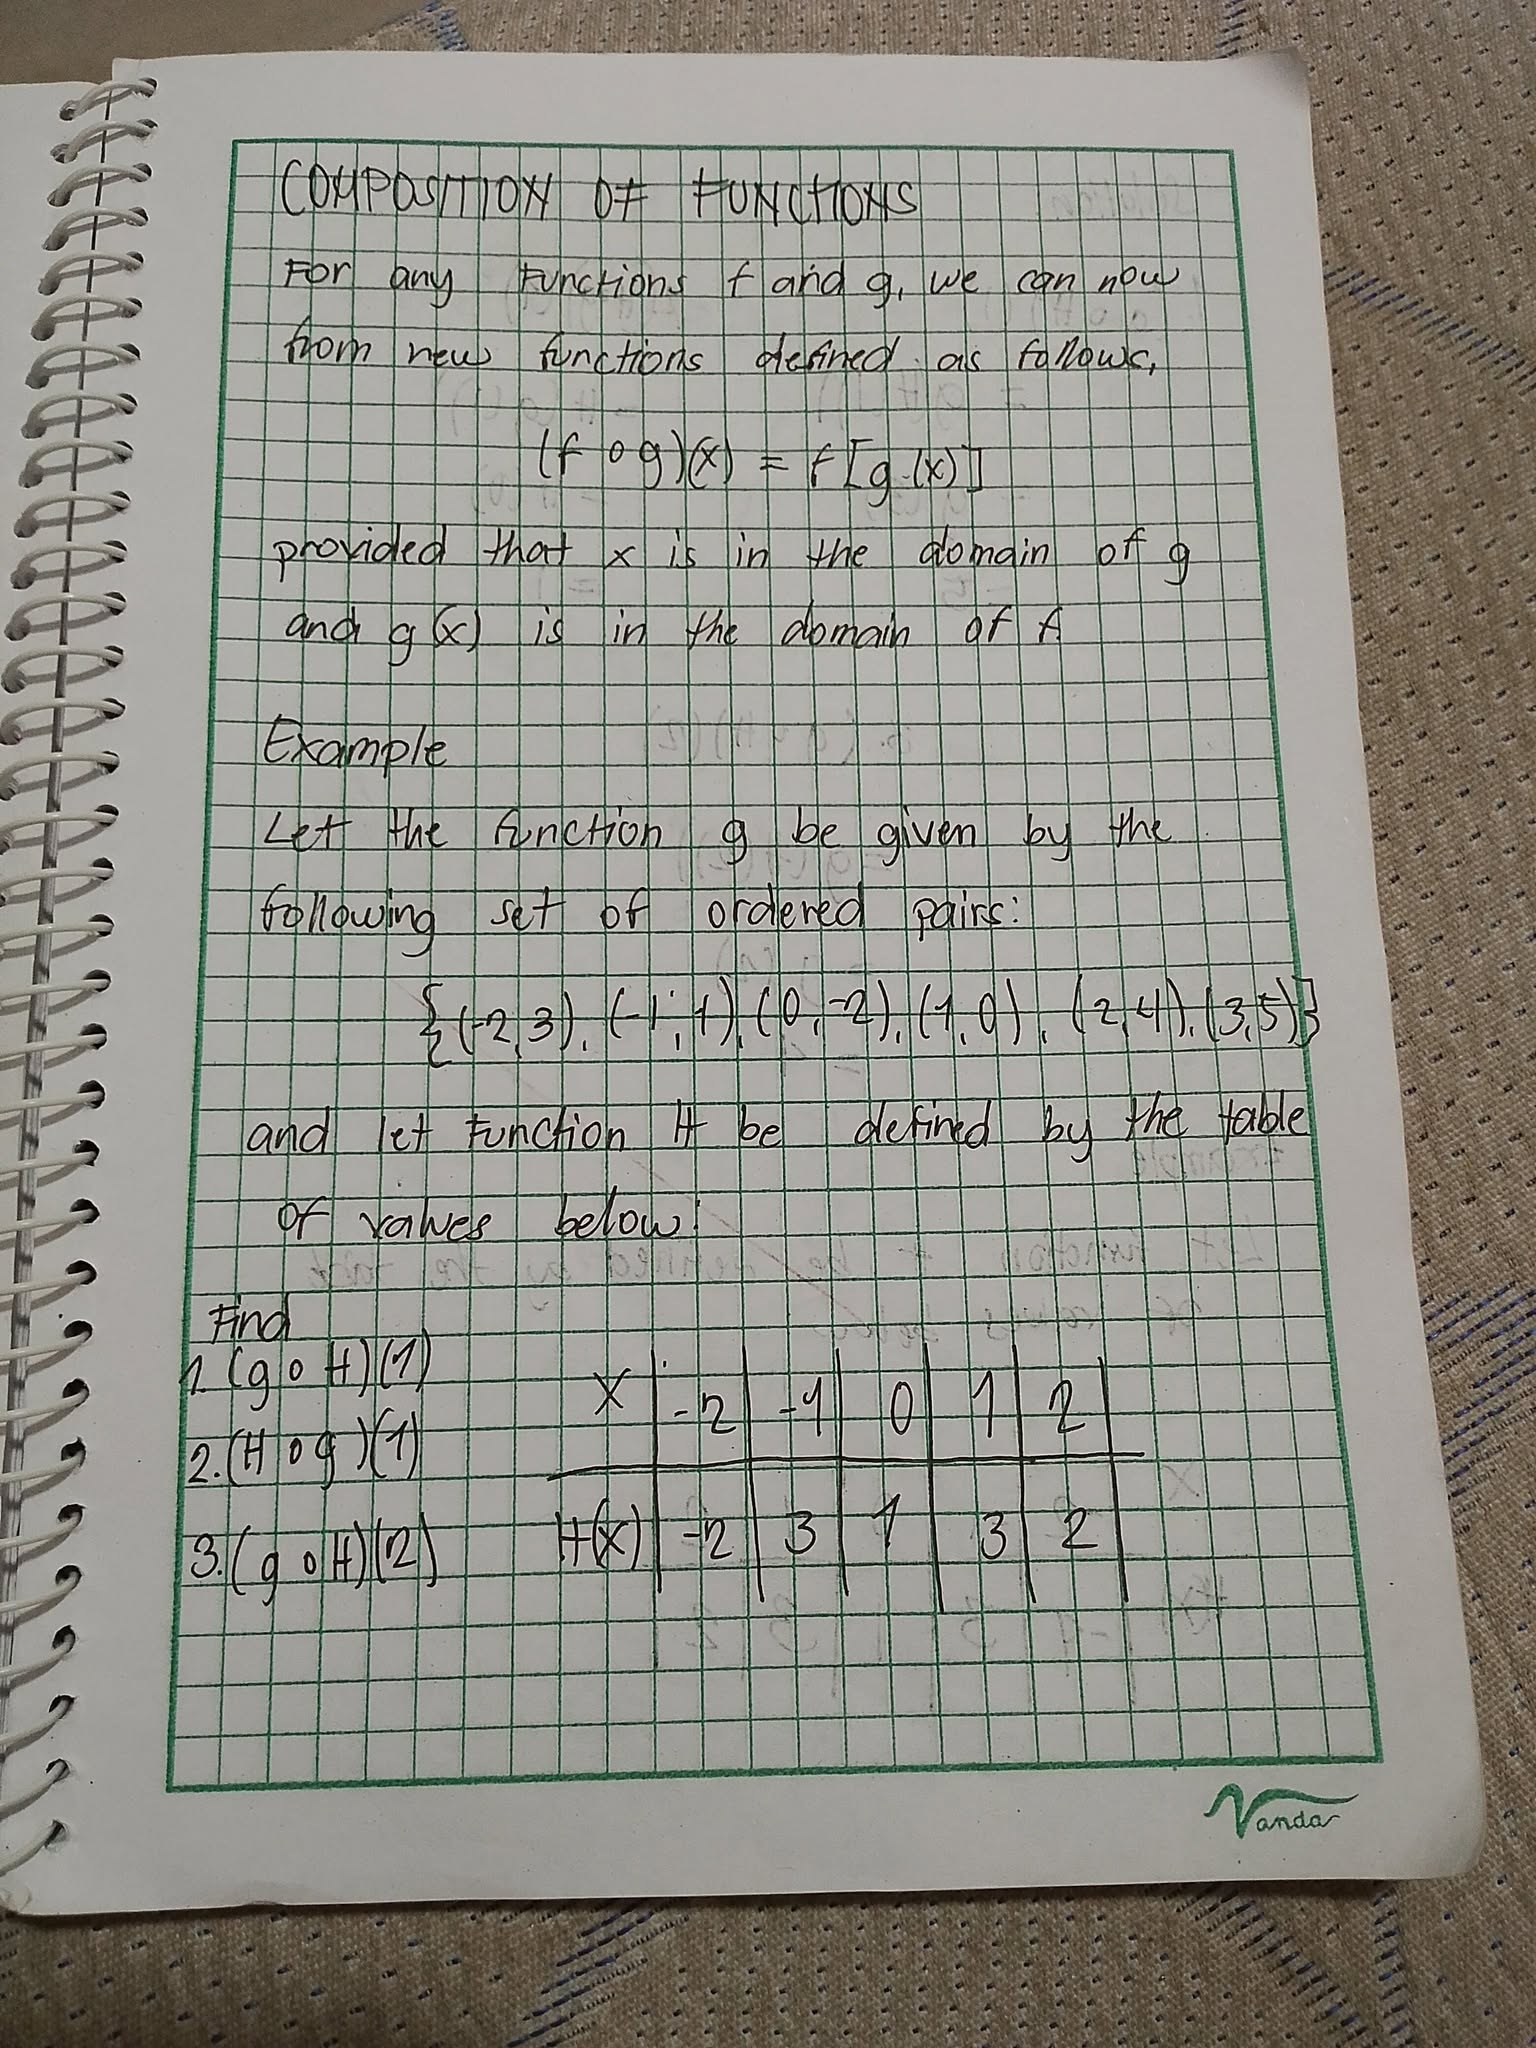 COMPOSITION OF FUNCTIONS
For any functions f and g, we can now
from new functions defined as follows,
(f o g)(x) = f[g(x)]
provided that x is in the domain of g
and g(x) is in the domain of f
Example
Let the function g be given by the
following set of ordered pairs:
{(-2,3), (-1,1), (0,-2), (1,0), (2,4), (3,5)}
and let function H be defined by the table
of values below:
Find
1. (g o H)(1)
2. (H o g)(1)
3. (g o H)(2)
X | -2 | -1 | 0 | 1 | 2
H(x) | -2 | 3 | 1 | 3 | 2
Vanda